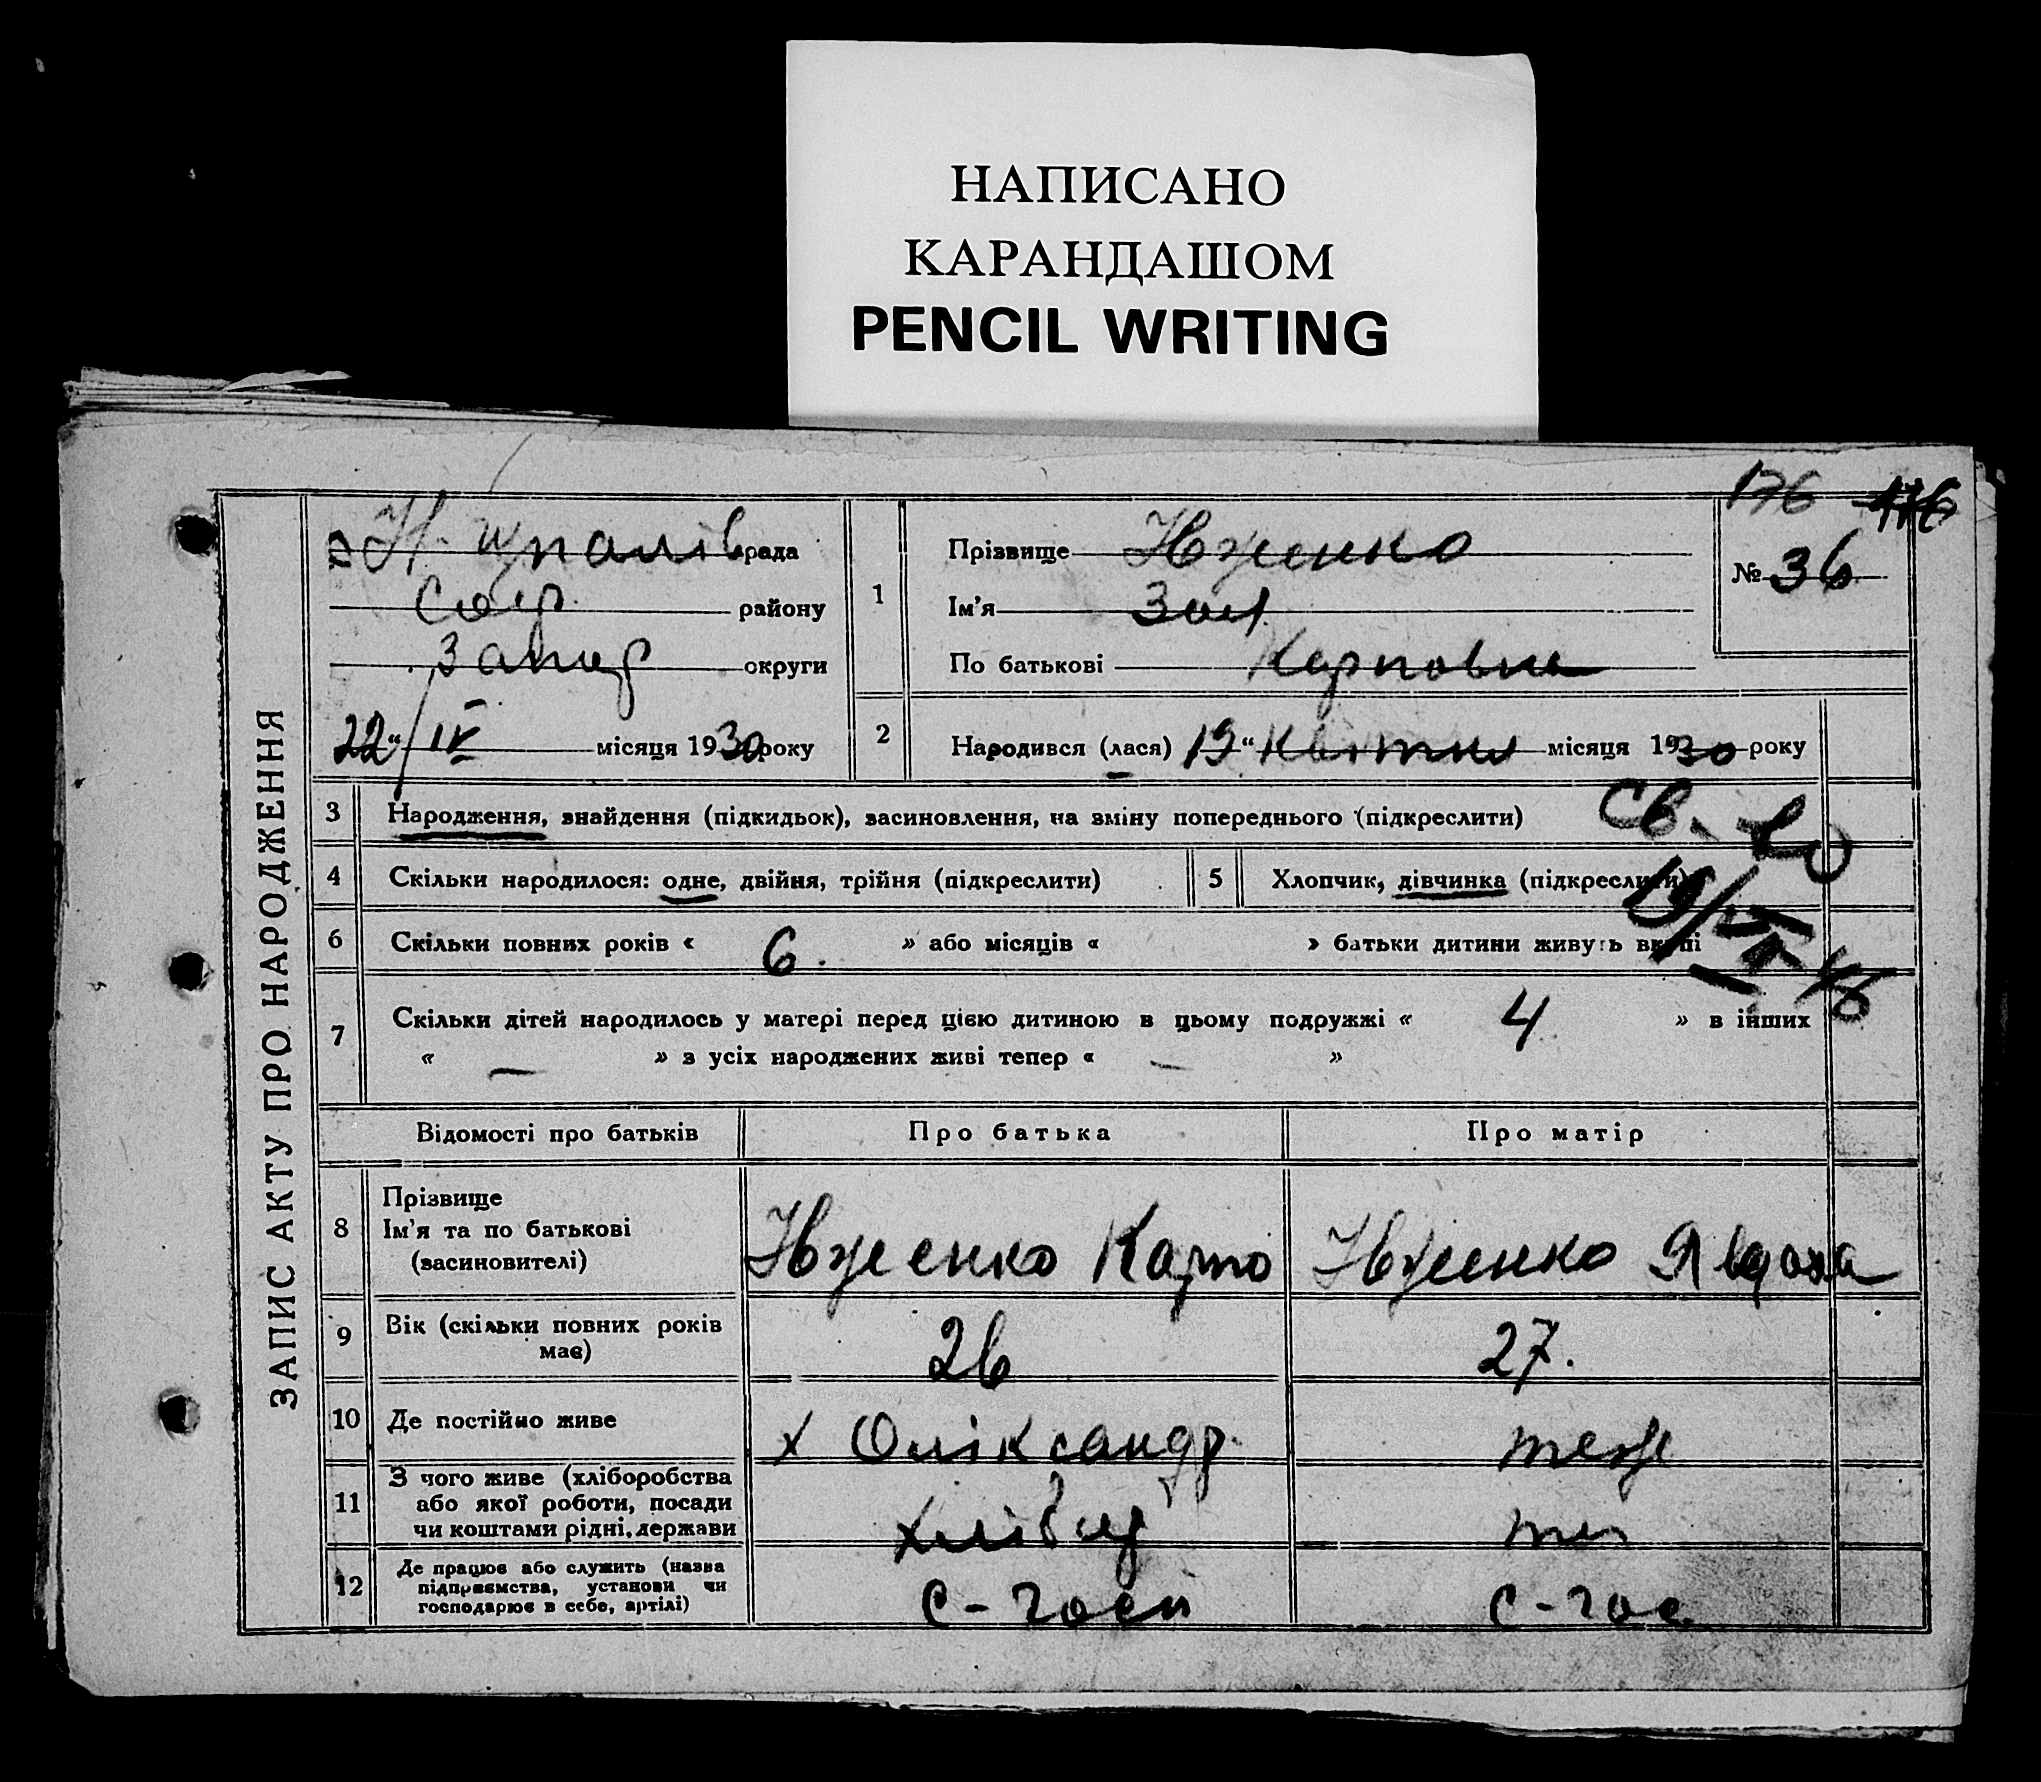 НАПИСАНО
КАРАНДАШОМ
PENCIL WRITING
176 176
ЗАПИС АКТУ ПРО НАРОДЖЕННЯ
рада
Соф. району
Запор округи
22 “ IV місяця 1930 року
1
Прізвище Ївженко
Ім’я Зоя.
По батькові Карповна
№ 36
2 Народився (лася) 19 “ Квітня місяця 1930 року
3 Народження, знайдення (підкидьок), засиновлення, на зміну попереднього (підкреслити)
Св.
4 Скільки народилося: одне, двійня, трійня (підкреслити) 5 Хлопчик, дівчинка (підкреслити)
19/
6 Скільки повних років « 6. » або місяців « » батьки дитини живуть вкупі
7 Скільки дітей народилось у матері перед цією дитиною в цьому подружжі « 4 » в інших
« — » з усіх народжених живі тепер « — »
Відомості про батьків Про батька Про матір
8 Прізвище
Ім’я та по батькові
(засиновителі)
Ївженко Карпо Ївженко Явдоха
9 Вік (скільки повних років
має)
26 27.
10 Де постійно живе х Оліксандр. теж
11 З чого живе (хліборобства
або якої роботи, посади
чи коштами рідні, держави
хлібор теж
12 Де працює або служить (назва
підприємства, установи чи
господарює в себе, артілі)
с-госп с-гос